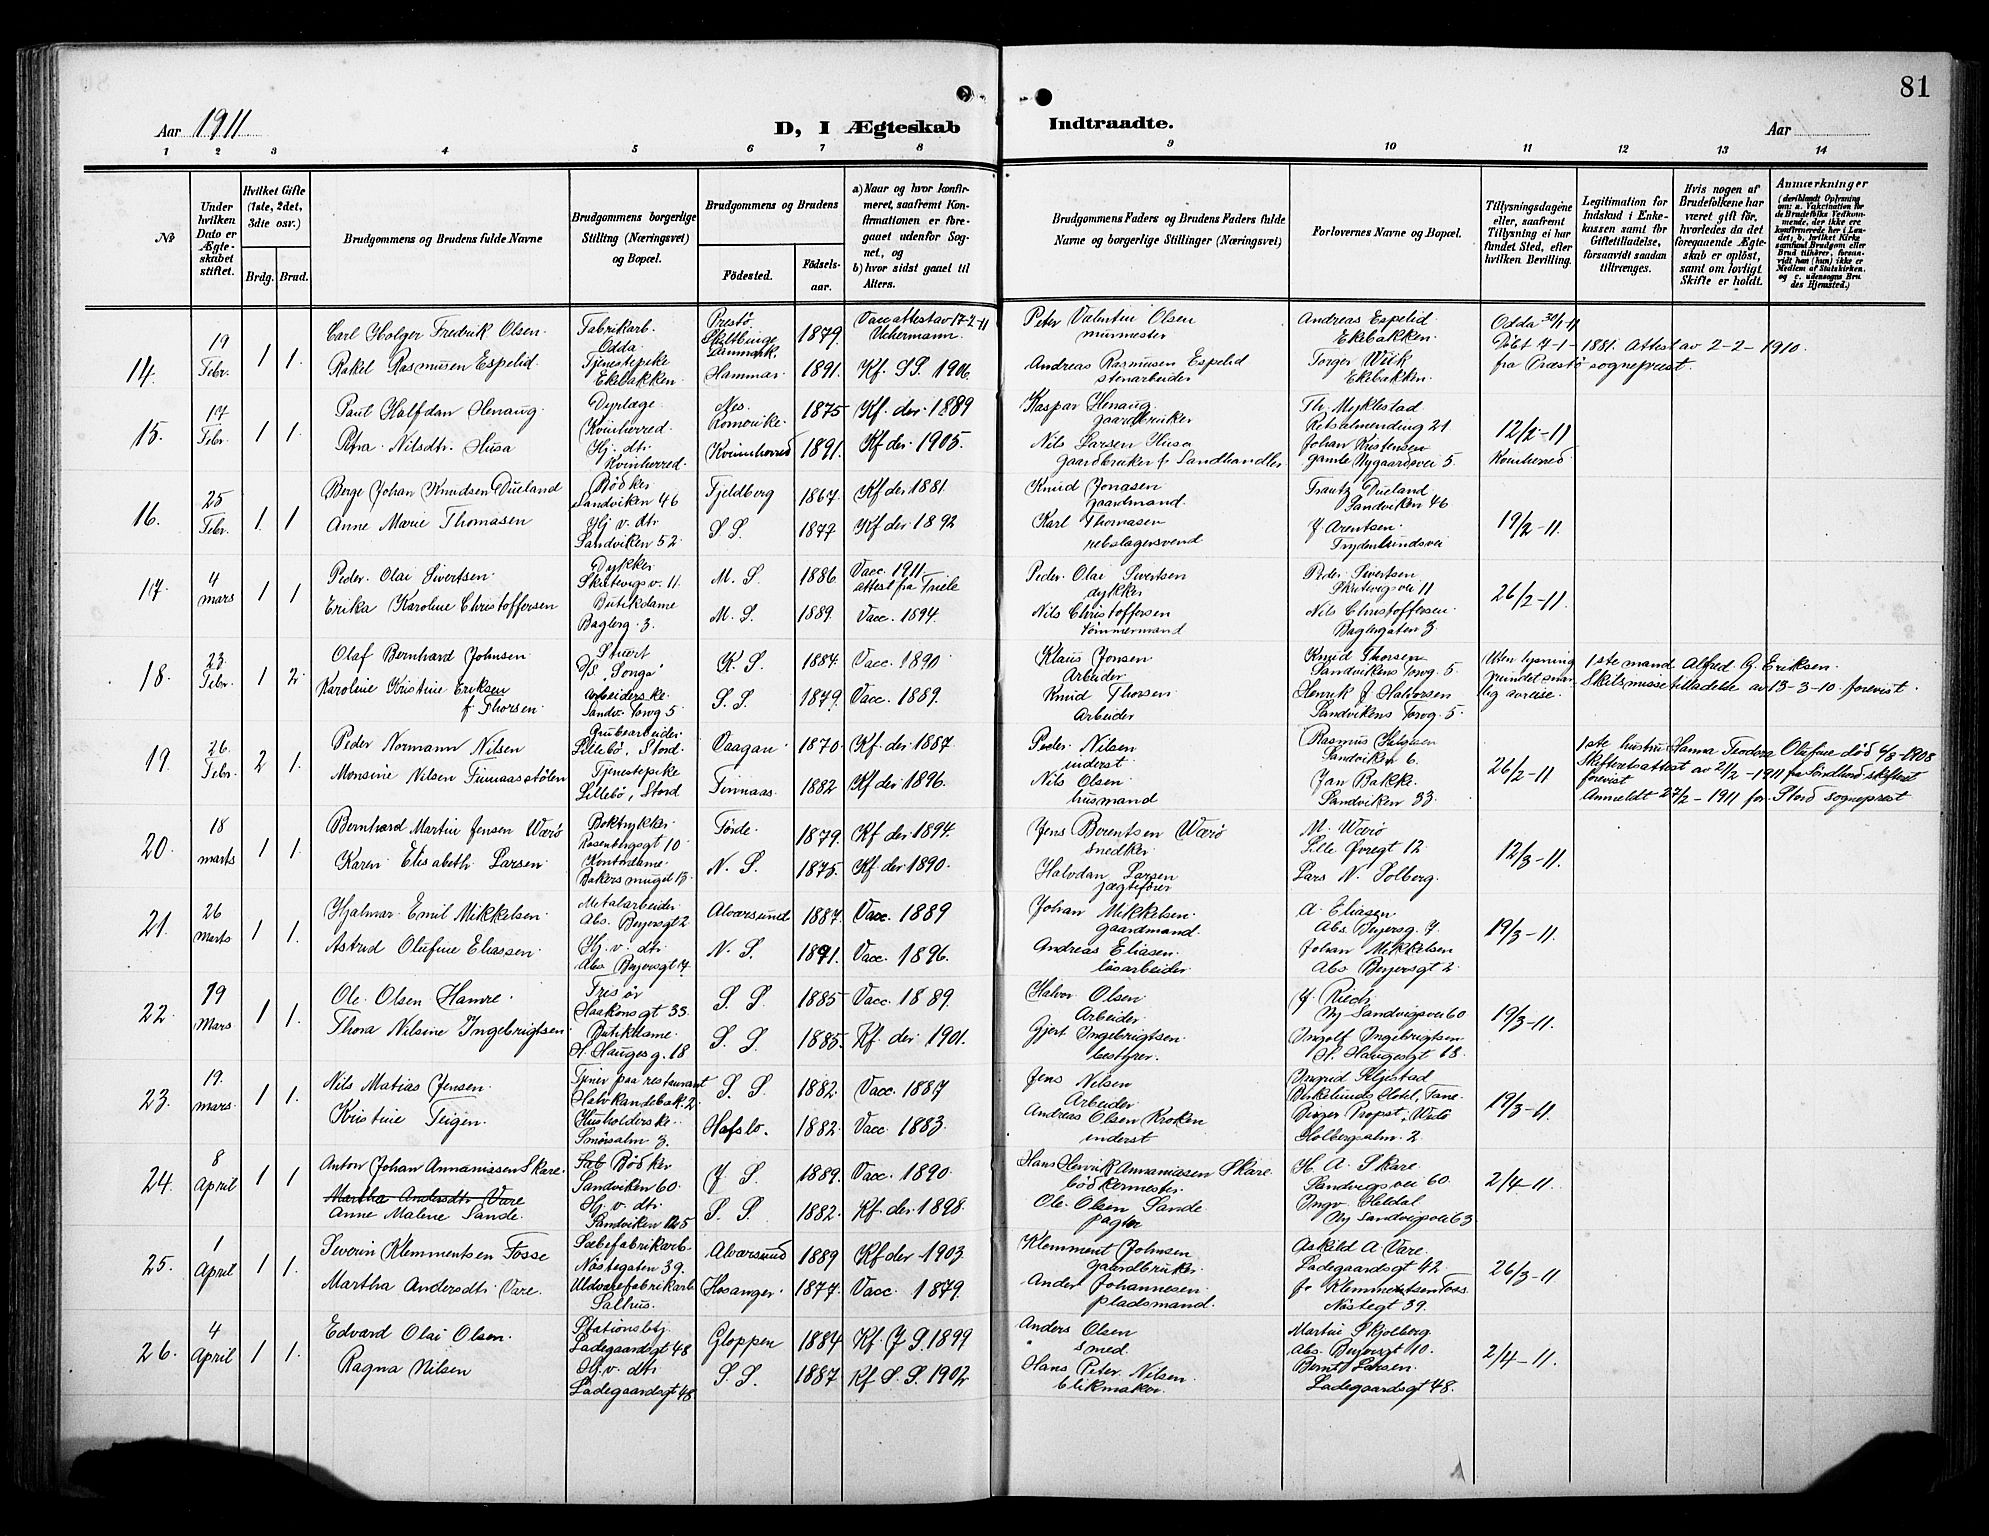 81
Aar 1911
D, I Ægteskab Indtraadte.
Aar
1 2 3 4 5 6 7 8 9 10 11 12 13 14
Nr.
Under hvilken Dato er Ægteskabet stiftet.
Hvilket Gifte (1ste, 2det, 3die osv.)
Brdg. Brud.
Brudgommens og Brudens fulde Navne
Brudgommens borgerlige Stilling (Næringsvei) og Bopæl.
Brudgommens og Brudens
Fødested.
Fødselsaar.
a) Naar og hvor konfirmeret, saafremt Konfirmationen er foregaaet udenfor Sognet, og
b) hvor sidst gaaet til Alters.
Brudgommens Faders og Brudens Faders fulde Navne og borgerlige Stillinger (Næringsvei)
Forlovernes Navne og Bopæl.
Tillysningsdagene eller, saafremt Tillysning ei har fundet Sted, efter hvilken Bevilling.
Legitimation for Indskud i Enkekassen samt for Giftetilladelse, forsaavidt saadan tiltrænges.
Hvis nogen af Brudefolkene har været gift før, hvorledes da det foregaaende Ægteskab er opløst, samt om lovligt Skifte er holdt.
Anmærkninger
(deriblandt Oplysning om: a. Vakcination for de Brudefolks Vedkommende, der ikke ere konfirmerede her i Landet; b. hvilket Kirkesamfund Brudgom eller Brud tilhører, forsaavidt han (hun) ikke er Medlem af Statskirken, og c. udensogns Brudes Hjemsted.)
14. 19 Febr. 1 1.
Carl Holger Fredrik Olsen. Fabrikarb. Odda. Prestø Danmark. 1879. Vaccattest av 17-2-11 Uchermann. Peter Valentin Olsen murmester Andreas Espelid Ekebakken. Odda 30/1-11
Døbt 7-1-1881. Attest av 2-2-1910. fra Præstø sogneprest.
Rakel Rasmusen Espelid. Tjenestepike Ekebakken. Hammar. 1891. Kf. SS. 1906. Andreas Rasmusen Espelid stenarbeider Torger Wiik Ekebakken.
15. 17 Febr. 1 1.
Paul Halfdan Henaug. Dyrlæge. Kvinherred. Nes. Romerike. 1875 Kf. der 1889 Kaspar Henaug gaardbruker Th. Myklestad Kalsalmending 21 12/2-11 Kvinherred.
Petra Nilsdtr. Husa Hj. dtr. Kvinherred. Kvinnherred 1891. Kf. der 1905. Nils Larsen Husa gaardbruker & Landhandler Johan Kristensen gamle Nygaardsvei 5.
16. 25 Febr. 1. 1
Berge Johan Knudsen Dueland Bødker Sandviken 46 Fjeldberg 1867. Kf. der 1881. Knud Jonasen gaardmand. Frantz Dueland Sandviken 46 19/2-11.
Anne Marie Thomasen Hj. v. dtr Sandviken 52 S. S. 1877 Kf der 1892 Karl Thomasen rebslagersvend J. Arentsen. Frydenlundsvei
17. 4 mars 1 1
Peder Olai Sivertsen. Dykker Skutevigsv. 11. M. S. 1886. Vacc. 1911. attest fra Friele Peder Olai Sivertsen dykker Peder Sivertsen Skutevigsvei 11 26/2-11.
Erika Karoline Christoffersen Butikdame Baglerg. 3. M. S. 1889. Vacc. 1894. Nils Christoffersen tømmermand Nils Christoffersen. Baglergaten 3.
18. 23 Febr. 1 2.
Olaf Bernhard Johnsen Stuert D/S "Songa" K. S. 1884. Vacc. 1890 Klaus Jonsen Arbeider Knud Thorsen Sandvikens Torvg. 5 Uten lysning grundet snarlig avreise.
1ste mand Alfred G. Eriksen. Skilsmissetilladelse av 13-3-10 forevist.
Karoline Kristine Eriksen f. Thorsen. Arbeiderske. Sandv. Torvg 5 S. S. 1879. Vacc. 1889. Knud Thorsen Arbeider Henrik J. Halvorsen Sandvikens Torvg. 5.
19. 26. Febr. 2 1.
Peder Normann Nilsen Grubearbeider Lillebø, Stord Vaagan. 1870. Kf. der 1887. Peder Nilsen inderst Rasmus Sandviken 6. 26/2-11
1ste hustru Hanna Teodora Olufine død 6/8-1908 Skifteretsattest av 21/2-1911 fra Søndhord. skifteret forevist Anmeldt 27/2-1911 for Stord sogneprest
Monsine Nilsen Finnaasstølen Tjenestepike Lillebø, Stord Finnaas. 1882 Kf der 1896. Nils Olsen husmand Jan Bakke. Sandviken 33.
20. 18 marts 1 1.
Bernhard Martin Jensen Værø Boktrykker. Rosenbergsgt 10 Førde. 1879. Kf der 1894. Jens Berentsen Værø snedker. M. Værø Lille Øvregt 12. 12/3-11.
Karen Elisabeth Larsen. Kontordame. Bakersmuget 13. N. S. 1875. Kf der 1890. Halvdan Larsen jægtefører Lars N. Solberg.
21. 26 Marts 1 1.
Hjalmar Emil Mikkelsen. Metalarbeider Abs. Beyersgt 2 Alversund 1887. Vacc. 1889 Johan Mikkelsen. gaardmand. A. Eliasen Abs. Beyersg. 7. 19/3-11.
Astrid Olufine Eliassen. Hj. v. dtr. Abs. Beyersgt 7. N. S. 1891. Vacc. 1896. Andreas Eliasen. løsarbeider. Johan Mikkelsen Abs Beyersgt 2.
22. 19 Mars 1 1.
Ole Olsen Hamre. Frisør Haakonsgt 33. S. S. 1885 Vacc. 1889. Halvor Olsen Arbeider. J. Rieck Ny-Sandvigsvei 60 19/3-11.
Thora Nilsine Ingebrigtsen Butikdame. H. Hauges g. 18 S. S. 1885. Kf. der 1901. Gjert Ingebrigtsen. bestyrer. Ingolf Ingebrigtsen H. Haugesgt 18.
23. 19. mars. 1 1.
Nils Matias Jensen. Tjener paa restaurant Halvkandebak. 2. S. S. 1882. Vacc 1887 Jens Nilsen Arbeider Ingrid Kljestad Birkelunds Hotel, Fane. 19/3-11.
Kristine Teigen. Husholderske. Smørsalm 3. Hafslo. 1882. Vacc. 1883. Andreas Olsen Kroken inderst Birger Propst, Holbergsalm. 2.
24. 8 April 1 1
Anton Johan Annaniassen Skare. Bødker Sandviken 60. J. S. 1889. Vacc. 1890 Hans Henrik Annaniasen Skare. bødkermester H. A. Skare Sandvigsvei 60 2/4-11.
Martha Andersdtr Vare
Anne Malene Sande. Hj. v. dtr. Sandviken 125 S. S. 1882. Kf. der 1898. Ole Olsen Sande pagter Ingv. Heldal Ny Sandvigsvei 63
25. 1 April 1 1.
Severin Klemmentsen Fosse Sæbefabrikarb. Nøstegaten 39. Alversund 1889 Kf der 1903. Klemment Johnsen gaardbruker. Askild A Vare. Ladegaardsgt 42. 26/3-11.
Martha Andersdtr. Vare. Uldvarefabrikarb Salhus. Hosanger. 1877. Vacc. 1879. Anders Johannesen. pladsmand. Klemmentsen Foss. Nøstegt 39.
26. 4 April 1 1.
Edvard Olai Olsen. Stationsbtj. Ladegaardsgt 48 Gloppen 1884 Kf. J. S. 1899 Anders Olsen smed. Martin Skjolberg. Abs. Beyersgt 10. 2/4-11.
Ragna Nilsen Hj. v. dtr. Ladegaardsgt 48 S. S. 1887 Kf S. S. 1902 Hans Peter Nilsen. blikmaker. Bernt Larsen. Ladegaardsgt 48.